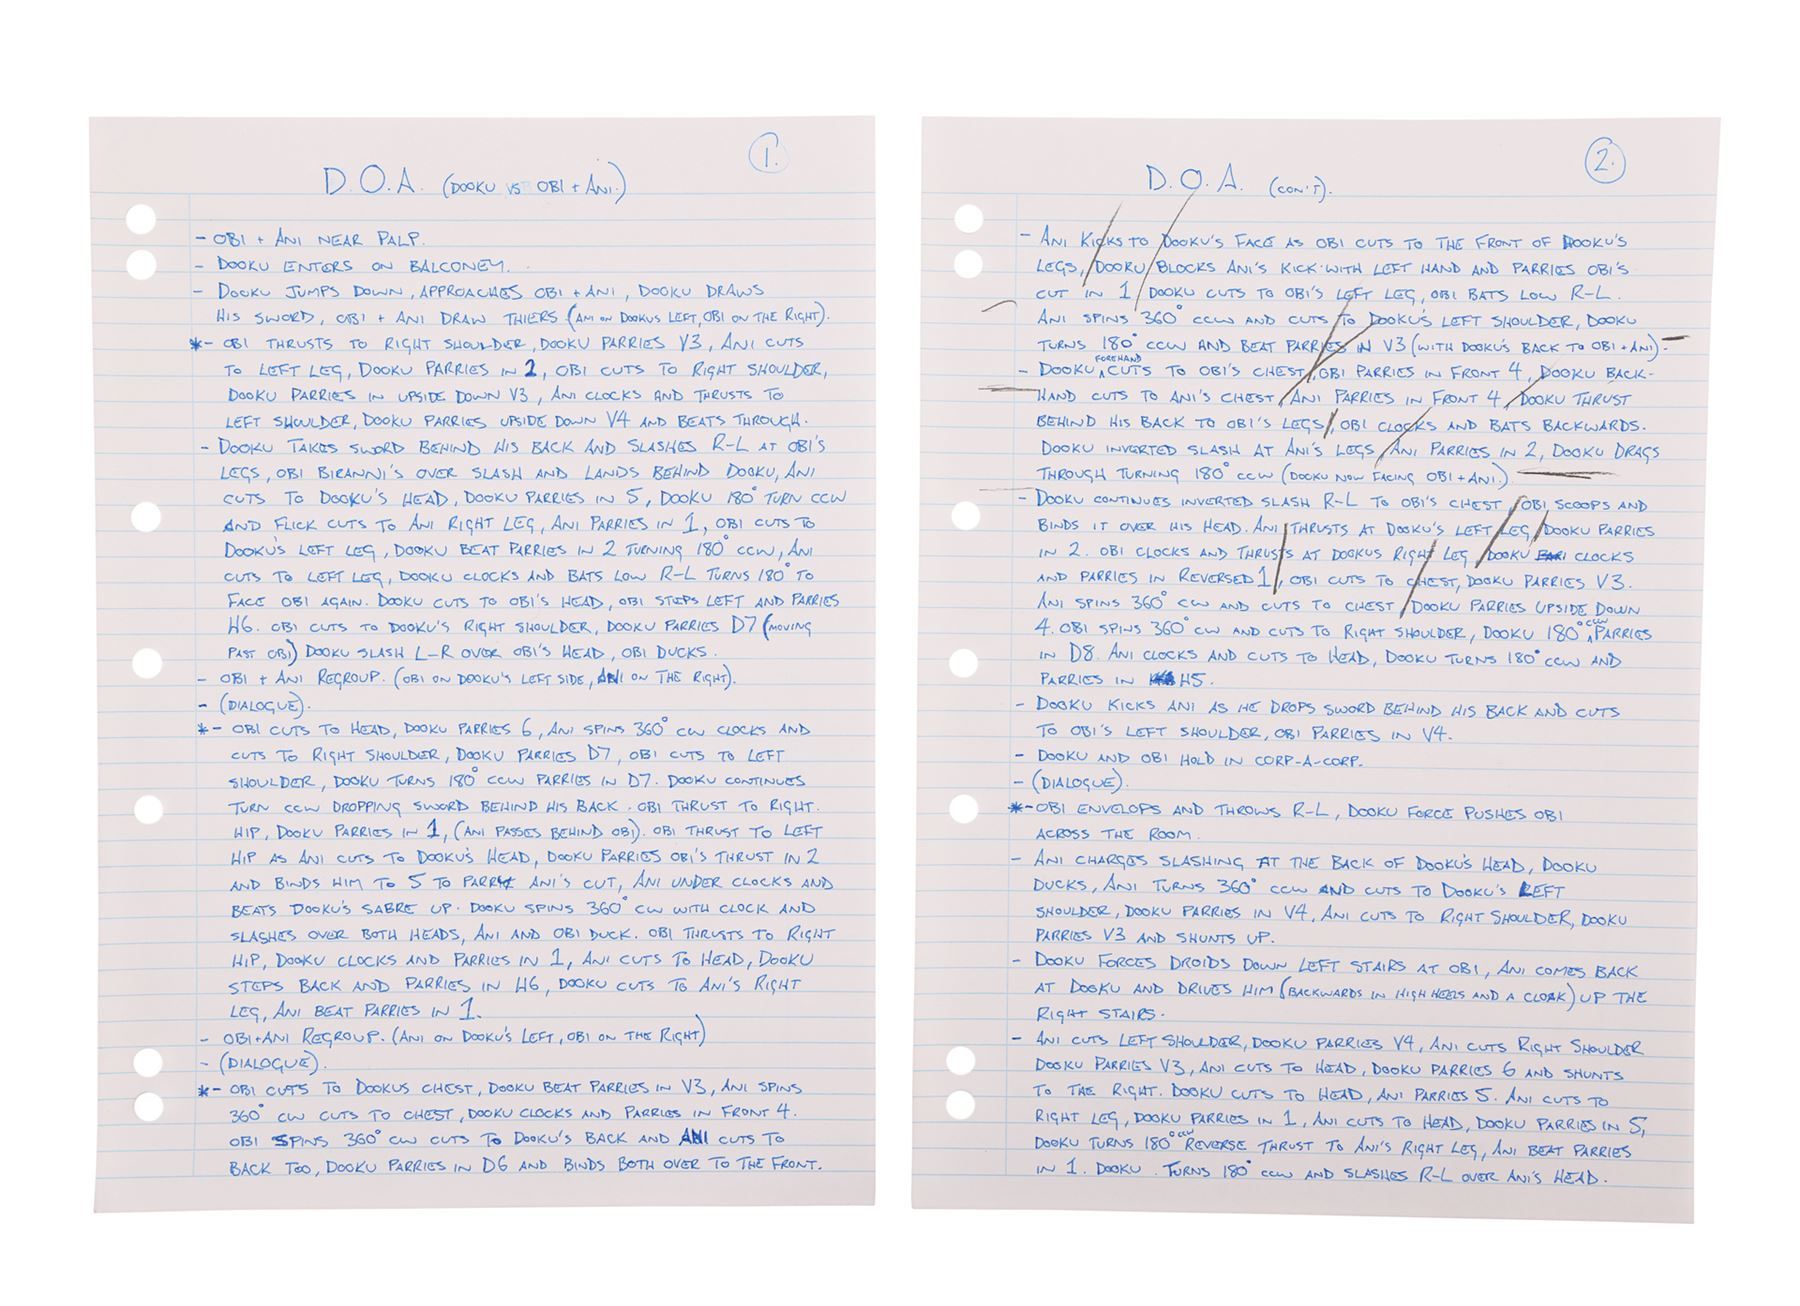 1.
D.O.A. (DOOKU VS OBI + ANI.)
- OBI + ANI NEAR PALP.
- DOOKU ENTERS ON BALCONEY.
- DOOKU JUMPS DOWN, APPROACHES OBI + ANI, DOOKU DRAWS
HIS SWORD, OBI + ANI DRAW THIERS (ANI ON DOOKUS LEFT, OBI ON THE RIGHT).
*- OBI THRUSTS TO RIGHT SHOULDER, DOOKU PARRIES V3, ANI CUTS
TO LEFT LEG, DOOKU PARRIES IN 2, OBI CUTS TO RIGHT SHOULDER,
DOOKU PARRIES IN UPSIDE DOWN V3, ANI CLOCKS AND THRUSTS TO
LEFT SHOULDER, DOOKU PARRIES UPSIDE DOWN V4 AND BEATS THROUGH.
- DOOKU TAKES SWORD BEHIND HIS BACK AND SLASHES R-L AT OBI'S
LEGS, OBI BIRANNI'S OVER SLASH AND LANDS BEHIND DOOKU, ANI
CUTS TO DOOKU'S HEAD, DOOKU PARRIES IN 5, DOOKU 180° TURN CCW
AND FLICK CUTS TO ANI RIGHT LEG, ANI PARRIES IN 1, OBI CUTS TO
DOOKU'S LEFT LEG, DOOKU BEAT PARRIES IN 2 TURNING 180° CCW, ANI
CUTS TO LEFT LEG, DOOKU CLOCKS AND BATS LOW R-L TURNS 180° TO
FACE OBI AGAIN. DOOKU CUTS TO OBI'S HEAD, OBI STEPS LEFT AND PARRIES
H6. OBI CUTS TO DOOKU'S RIGHT SHOULDER, DOOKU PARRIES D7 (MOVING
PAST OBI) DOOKU SLASH L-R OVER OBI'S HEAD, OBI DUCKS.
- OBI + ANI REGROUP. (OBI ON DOOKU'S LEFT SIDE, ANI ON THE RIGHT).
- (DIALOGUE).
*- OBI CUTS TO HEAD, DOOKU PARRIES 6, ANI SPINS 360° CW CLOCKS AND
CUTS TO RIGHT SHOULDER, DOOKU PARRIES D7, OBI CUTS TO LEFT
SHOULDER, DOOKU TURNS 180° CCW PARRIES IN D7. DOOKU CONTINUES
TURN CCW DROPPING SWORD BEHIND HIS BACK. OBI THRUST TO RIGHT.
HIP, DOOKU PARRIES IN 1, (ANI PASSES BEHIND OBI). OBI THRUST TO LEFT
HIP AS ANI CUTS TO DOOKU'S HEAD, DOOKU PARRIES OBI'S THRUST IN 2
AND BINDS HIM TO 5 TO PARRY ANI'S CUT, ANI UNDER CLOCKS AND
BEATS DOOKU'S SABRE UP. DOOKU SPINS 360° CW WITH CLOCK AND
SLASHES OVER BOTH HEADS, ANI AND OBI DUCK. OBI THRUSTS TO RIGHT
HIP, DOOKU CLOCKS AND PARRIES IN 1, ANI CUTS TO HEAD, DOOKU
STEPS BACK AND PARRIES IN H6, DOOKU CUTS TO ANI'S RIGHT
LEG, ANI BEAT PARRIES IN 1.
- OBI+ANI REGROUP. (ANI ON DOOKU'S LEFT, OBI ON THE RIGHT)
- (DIALOGUE).
*- OBI CUTS TO DOOKUS CHEST, DOOKU BEAT PARRIES IN V3, ANI SPINS
360° CW CUTS TO CHEST, DOOKU CLOCKS AND PARRIES IN FRONT 4.
OBI SPINS 360° CW CUTS TO DOOKU'S BACK AND ANI CUTS TO
BACK TOO, DOOKU PARRIES IN D6 AND BINDS BOTH OVER TO THE FRONT.
2.
D.O.A. (CON'T).
- ANI KICKS TO DOOKU'S FACE AS OBI CUTS TO THE FRONT OF DOOKU'S
LEGS, DOOKU BLOCKS ANI'S KICK WITH LEFT HAND AND PARRIES OBI'S
CUT IN 1, DOOKU CUTS TO OBI'S LEFT LEG, OBI BATS LOW R-L.
ANI SPINS 360° CCW AND CUTS TO DOOKU'S LEFT SHOULDER, DOOKU
TURNS 180° CCW AND BEAT PARRIES IN V3 (WITH DOOKU'S BACK TO OBI + ANI).
- DOOKU FOREHAND CUTS TO OBI'S CHEST, OBI PARRIES IN FRONT 4, DOOKU BACK-
HAND CUTS TO ANI'S CHEST, ANI PARRIES IN FRONT 4, DOOKU THRUST
BEHIND HIS BACK TO OBI'S LEGS, OBI CLOCKS AND BATS BACKWARDS.
DOOKU INVERTED SLASH AT ANI'S LEGS, ANI PARRIES IN 2, DOOKU DRAGS
THROUGH TURNING 180° CCW (DOOKU NOW FACING OBI + ANI).
- DOOKU CONTINUES INVERTED SLASH R-L TO OBI'S CHEST, OBI SCOOPS AND
BINDS IT OVER HIS HEAD. ANI THRUSTS AT DOOKU'S LEFT LEG, DOOKU PARRIES
IN 2. OBI CLOCKS AND THRUSTS AT DOOKUS RIGHT LEG, DOOKU CLOCKS
AND PARRIES IN REVERSED 1, OBI CUTS TO CHEST, DOOKU PARRIES V3.
ANI SPINS 360° CW AND CUTS TO CHEST, DOOKU PARRIES UPSIDE DOWN
4. OBI SPINS 360° CW AND CUTS TO RIGHT SHOULDER, DOOKU 180° CCW PARRIES
IN D8. ANI CLOCKS AND CUTS TO HEAD, DOOKU TURNS 180° CCW AND
PARRIES IN H5.
- DOOKU KICKS ANI AS HE DROPS SWORD BEHIND HIS BACK AND CUTS
TO OBI'S LEFT SHOULDER, OBI PARRIES IN V4.
- DOOKU AND OBI HOLD IN CORP-A-CORP.
- (DIALOGUE).
*- OBI ENVELOPS AND THROWS R-L, DOOKU FORCE PUSHES OBI
ACROSS THE ROOM.
- ANI CHARGES SLASHING AT THE BACK OF DOOKU'S HEAD, DOOKU
DUCKS, ANI TURNS 360° CCW AND CUTS TO DOOKU'S LEFT
SHOULDER, DOOKU PARRIES IN V4, ANI CUTS TO RIGHT SHOULDER, DOOKU
PARRIES V3 AND SHUNTS UP.
- DOOKU FORCES DROIDS DOWN LEFT STAIRS AT OBI, ANI COMES BACK
AT DOOKU AND DRIVES HIM (BACKWARDS IN HIGH HEELS AND A CLOAK) UP THE
RIGHT STAIRS.
- ANI CUTS LEFT SHOULDER, DOOKU PARRIES V4, ANI CUTS RIGHT SHOULDER
DOOKU PARRIES V3, ANI CUTS TO HEAD, DOOKU PARRIES 6 AND SHUNTS
TO THE RIGHT. DOOKU CUTS TO HEAD, ANI PARRIES 5. ANI CUTS TO
RIGHT LEG, DOOKU PARRIES IN 1, ANI CUTS TO HEAD, DOOKU PARRIES IN 5,
DOOKU TURNS 180° CCW REVERSE THRUST TO ANI'S RIGHT LEG, ANI BEAT PARRIES
IN 1. DOOKU . TURNS 180° CCW AND SLASHES R-L OVER ANI'S HEAD.